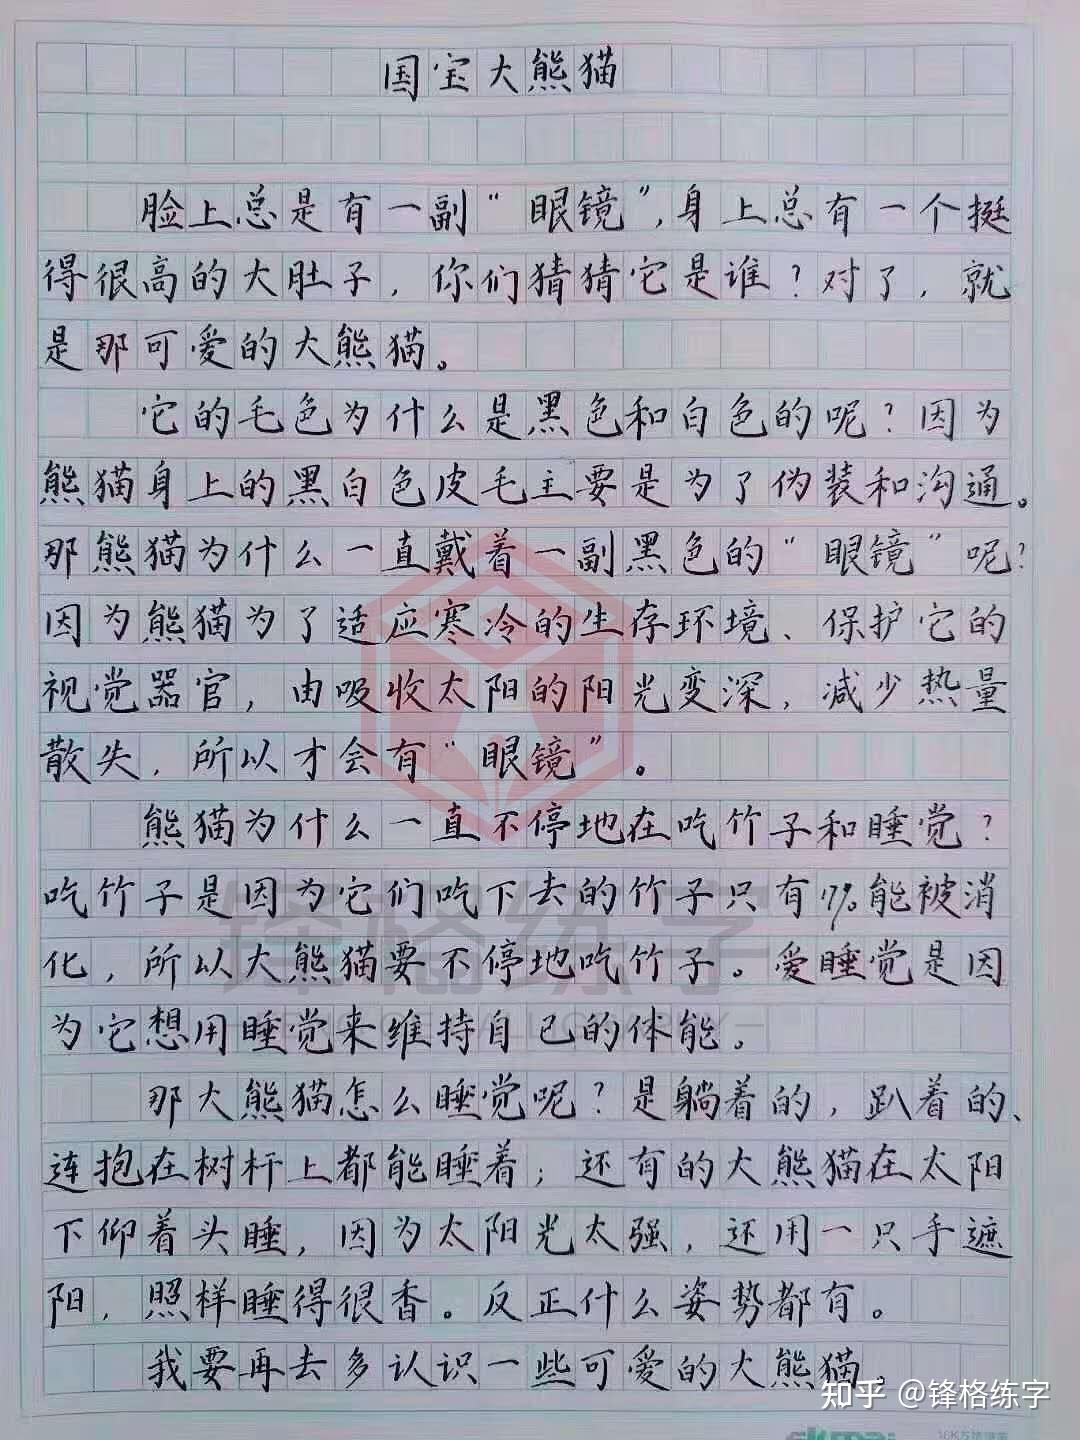 国宝大熊猫
脸上总是有一副“眼镜”,身上总有一个挺
得很高的大肚子，你们猜猜它是谁？对了，就
是那可爱的大熊猫。
它的毛色为什么是黑色和白色的呢？因为
熊猫身上的黑白色皮毛主要是为了伪装和沟通。
那熊猫为什么一直戴着一副黑色的“眼镜”呢？
因为熊猫为了适应寒冷的生存环境、保护它的
视觉器官，由吸收太阳的阳光变深，减少热量
散失，所以才会有“眼镜”。
熊猫为什么一直不停地在吃竹子和睡觉？
吃竹子是因为它们吃下去的竹子只有17%能被消
化，所以大熊猫要不停地吃竹子。爱睡觉是因
为它想用睡觉来维持自己的体能。
那大熊猫怎么睡觉呢？是躺着的，趴着的、
连抱在树杆上都能睡着；还有的大熊猫在太阳
下仰着头睡，因为太阳光太强，还用一只手遮
阳，照样睡得很香。反正什么姿势都有。
我要再去多认识一些可爱的大熊猫。
锋格练字
知乎 @锋格练字